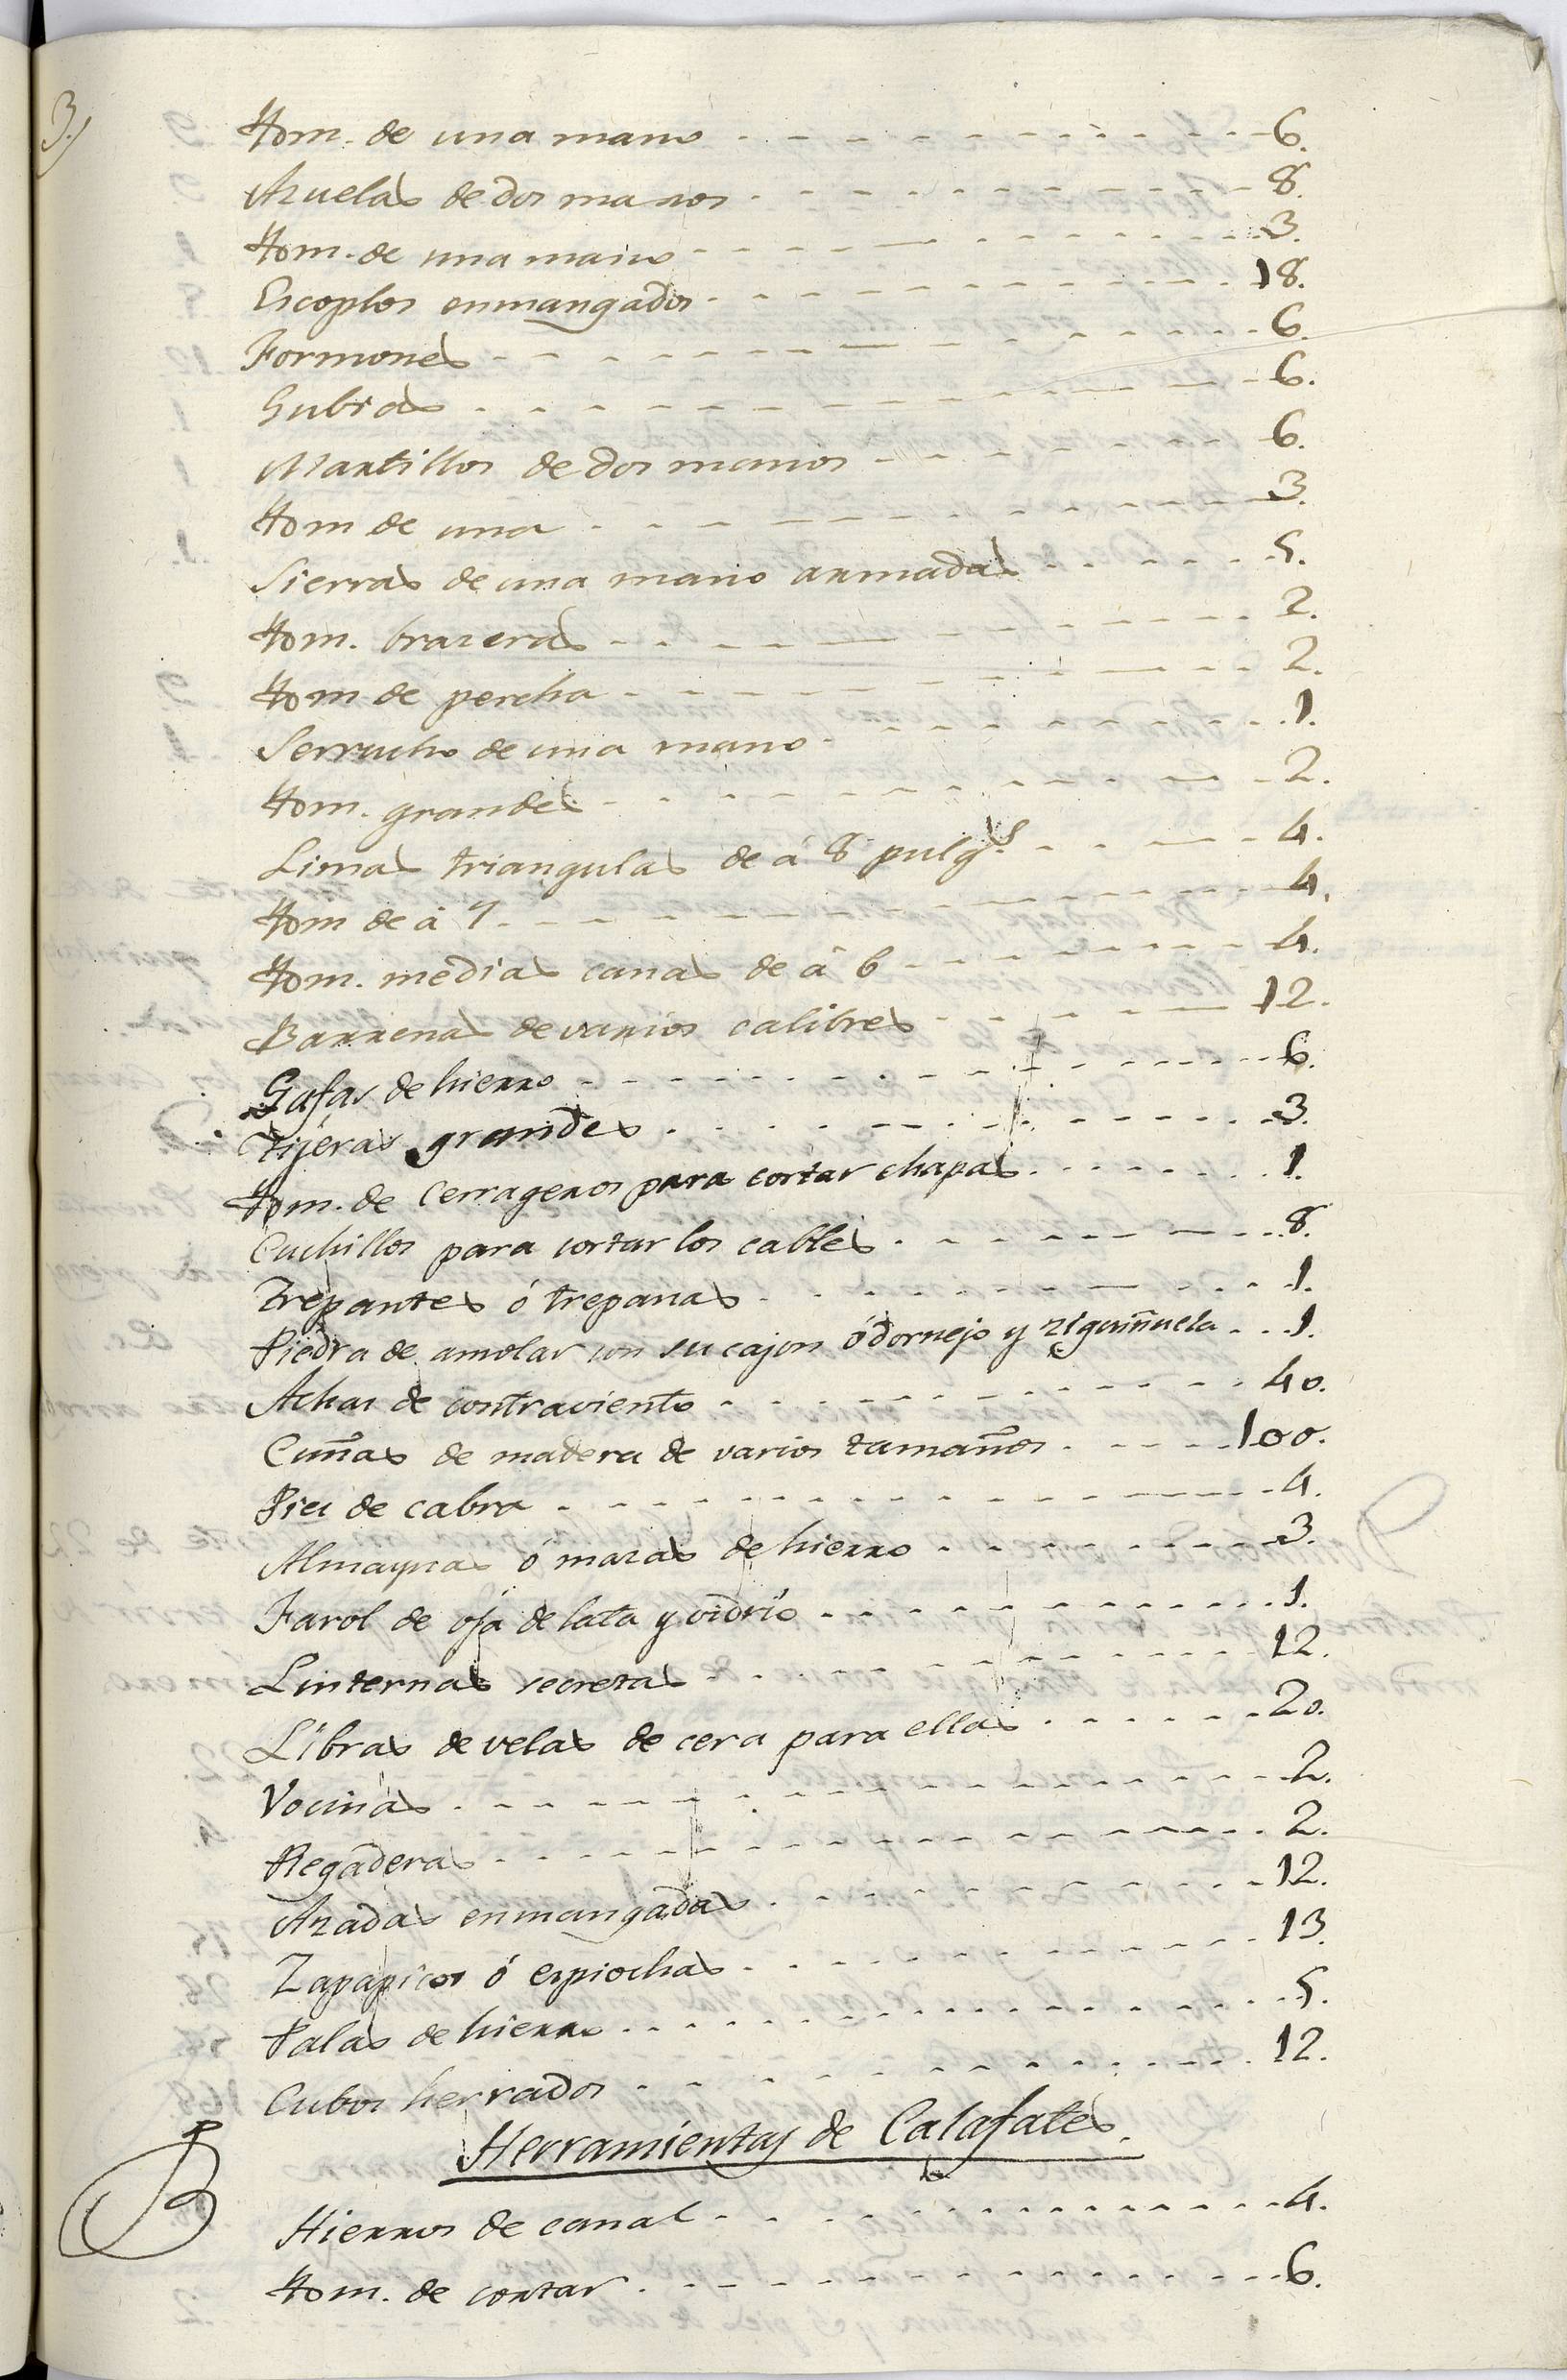 3.
Ytom. de una mano - - - - - - - - 6.
Azuelas de dos manos - - - - - - - - 8.
Ytom. de una mano - - - - - - - - 3.
Escoplos enmangados - - - - - - - - 18.
Formones - - - - - - - - 6.
Gubias - - - - - - - - 6.
Martillos de dos manos - - - - - - - - 6.
Ytom de una - - - - - - - - 3.
Sierras de una mano armadas - - - - - - 5.
Ytom. brazeras - - - - - - - - 2.
Ytom de percha - - - - - - - - 2.
Serrucho de una mano - - - - - - - - 1.
Ytom. grandes - - - - - - - - 2.
Limas triangulas de á 8 pulgs. - - - - 4.
Ytom de á 7 - - - - - - - - 4.
Ytom. medias canas de á 6 - - - - - - 4.
Barrenas de varios calibres - - - - - - 12.
Gafas de hierro - - - - - - - - 6.
Tijeras grandes - - - - - - - - 3.
Ytom. de cerrageros para cortar chapas - - - - 1.
Cuchillos para cortar los cables - - - - - - 8.
Trepantes ó trepanas - - - - - - - - 1.
Piedra de amolar con su cajon ó dornejo y ziguiñuela - - - 1.
Achas de contraviento - - - - - - - - 40.
Cuñas de madera de varios tamaños - - - - 100.
Pies de cabra - - - - - - - - 4.
Almaynas ó mazas de hierro - - - - - - 3.
Farol de oja de lata y vidrio - - - - - - 1.
Linternas secretas - - - - - - - - 12.
Libras de velas de cera para ellas - - - - - - 20.
Vocinas - - - - - - - - 2.
Regaderas - - - - - - - - 2.
Azadas enmangadas - - - - - - - - 12.
Zapapicos ó espiochas - - - - - - - - 13.
Palas de hierro - - - - - - - - 5.
Cubos herrados - - - - - - - - 12.
Herramientas de Calafates.
Hierros de canal - - - - - - - - 4.
Ytom. de cortar - - - - - - - - 6.